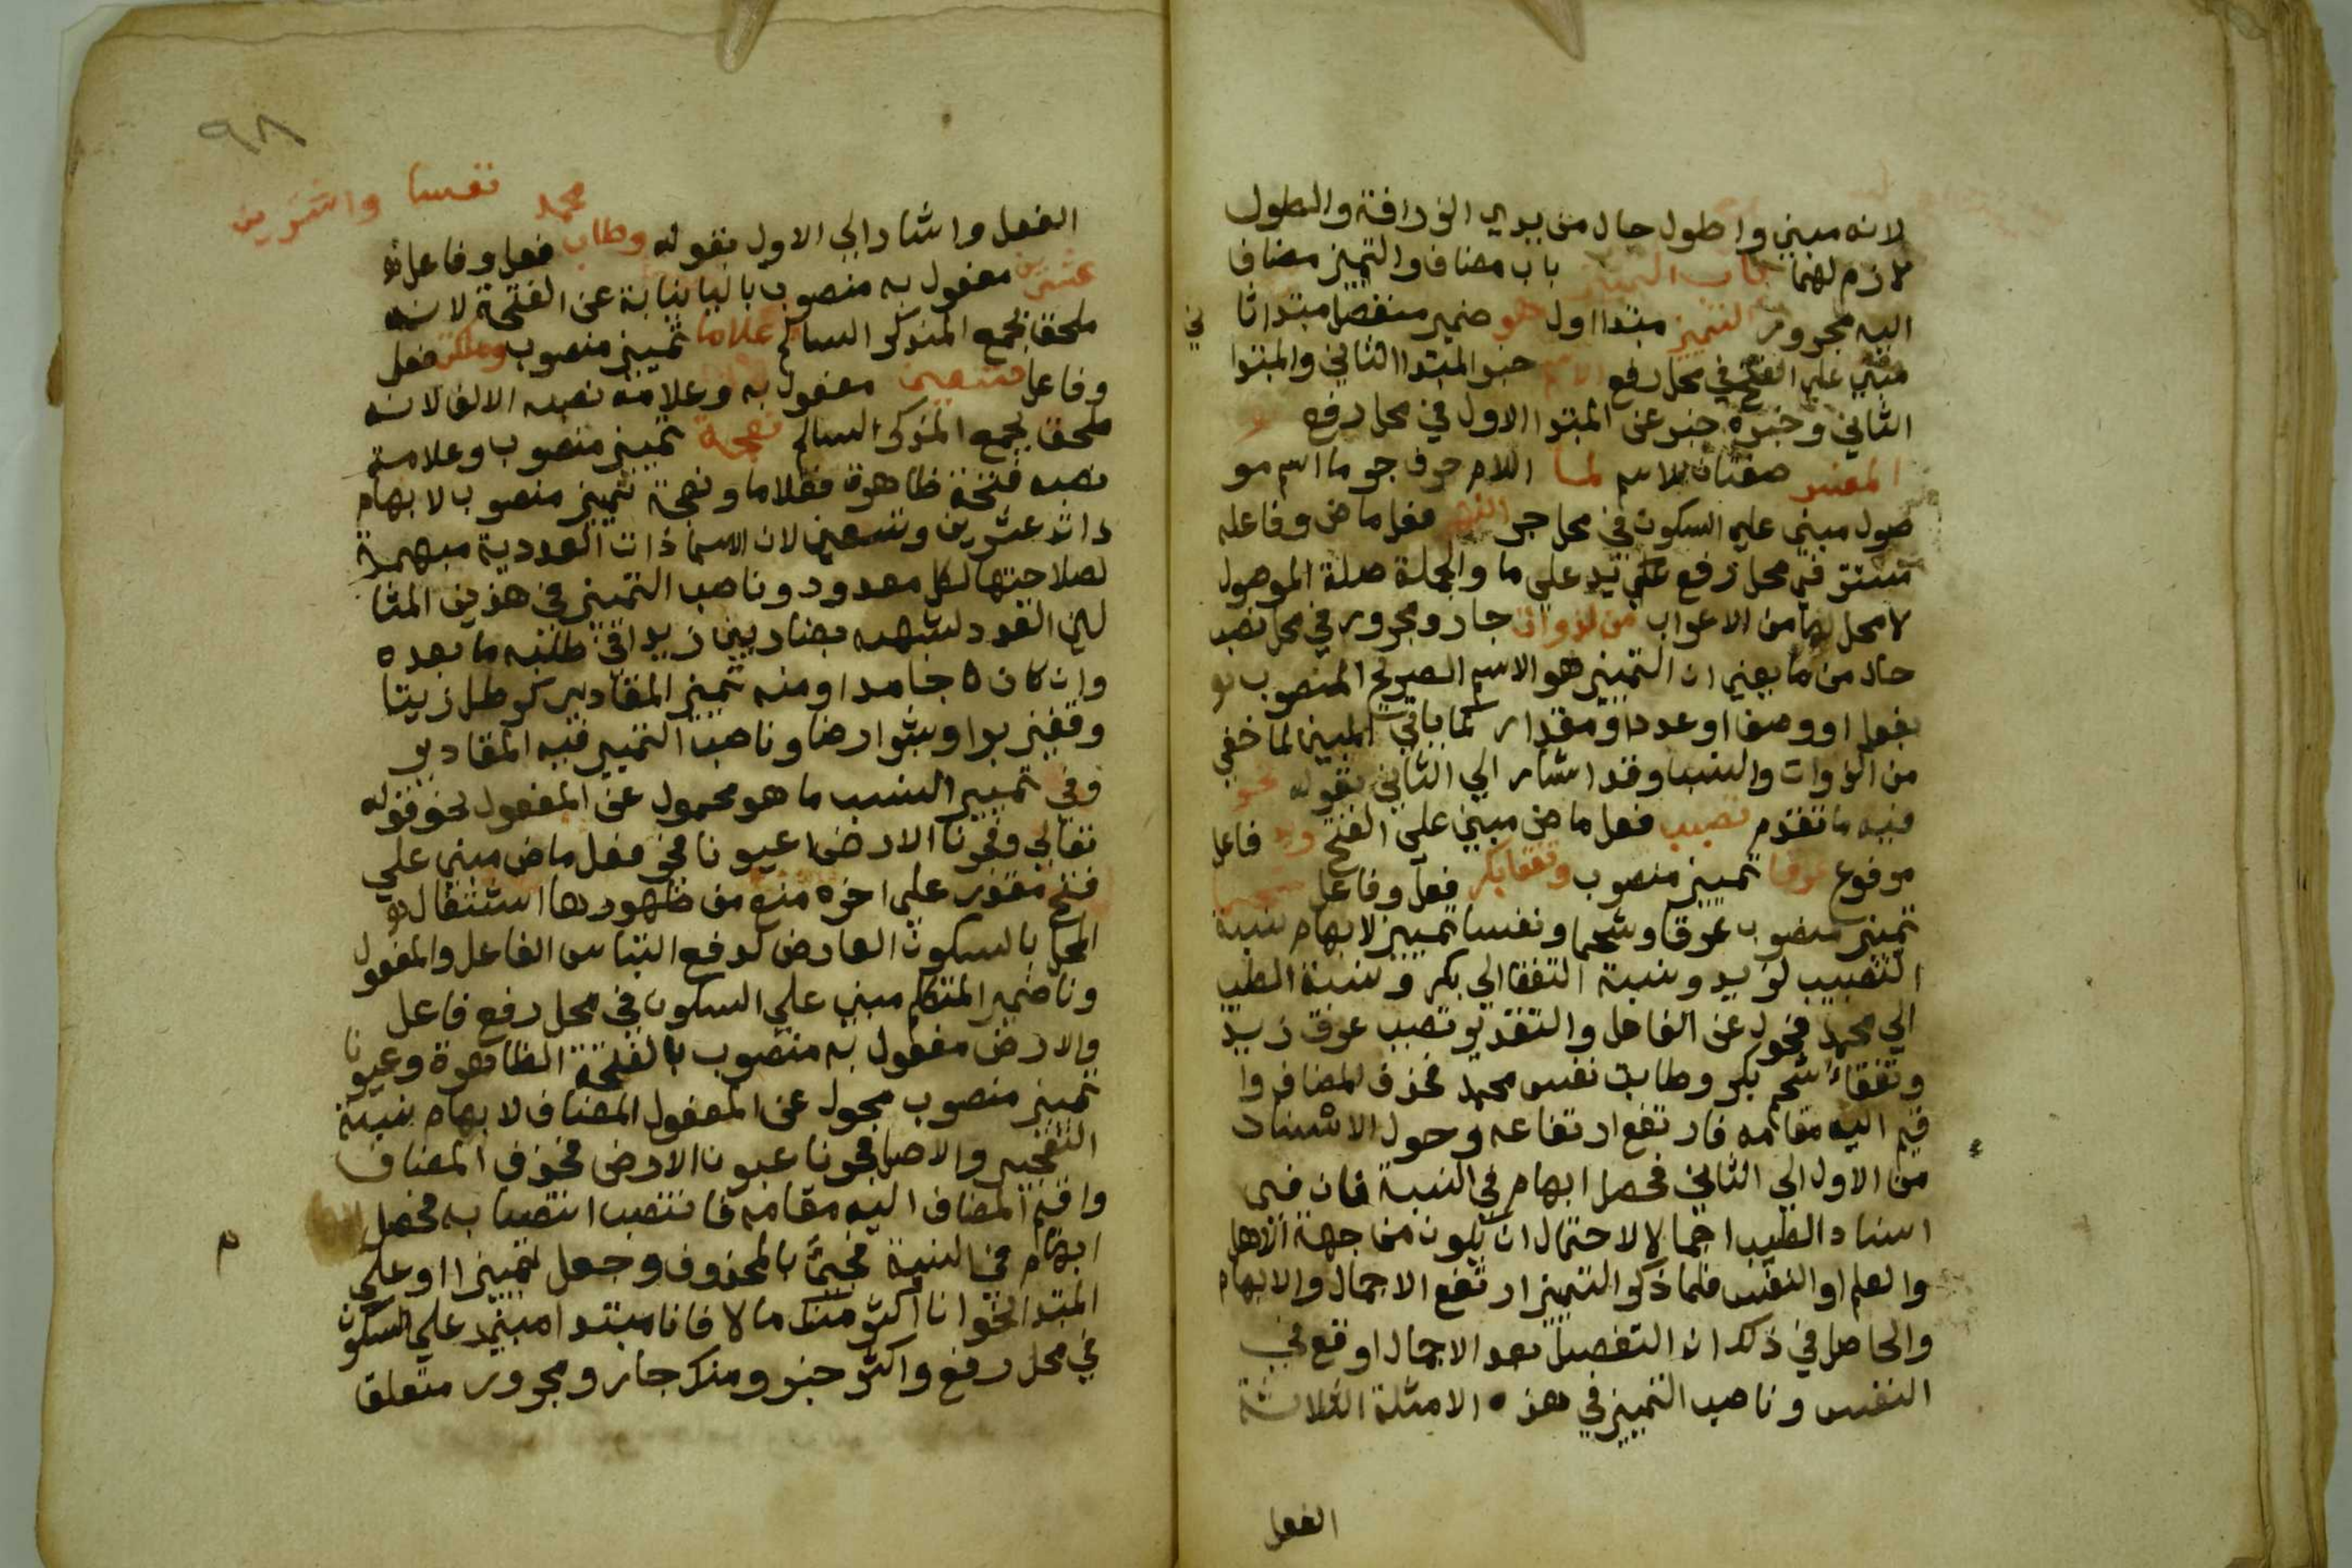 لانه مبيني واطول حال من يدي الزرافة والطول
لازم لهما باب التمييز باب مضاف والتميز مضاف
اليه مجرور التميز مبتدا اول هو ضمير منفصل مبتدا ثا ني
مبني علي الفتح في محل رفع الاسم خبر المبتدا الثاني والمبتدا
الثاني وخبره خبر عن المبتدا الاول في محل رفع
المفسر صفتان للاسم لما اللام حرف جر ما اسم مو
صول مبني علي السكون في محل جر انبهم فعل ماض وفاعله
مستتر في محل رفع علي ما والجملة صلة الموصول
لا محل لها من الاعراب من الذوات جار ومجرور في محل نصب
حال من ما يعني ان التمييز هو الاسم الصريح المنصوب
بفعل او وصف او عدد او مقدار كما ياتي المبين لما خفي
من الذوات والنسب وقد اشار الي الثاني بقوله نحو
فيه ما تقدم تصبب فعل ماض مبني علي الفتح زيد فاعل
مرفوع عرقا تمييز منصوب وتفقا بكر فعل وفاعل شحما
تمييز منصوب عرقا وشحما ونفسا تمييز لابهام نسبة
التصبب لزيد ونسبة التفقا الي بكر ونسبة الطيب
الي محمد محول عن الفاعل والتقدير تصبب عرق زيد
وتفقاء شحم بكر وطابت نفس محمد فحذف المضاف وا
قيم اليه مقامه فارتفع ارتفاعه وحول الاسناد
من الاول الي الثاني فحصل ابهام في النسبة فان في
اسناد الطيب اجمالا لاحتمال ان يكون من جهة الاهل
والعلم او النفس فلما ذكر التمييز ارتفع الاجمال والابهام
والحاصل في ذلك ان التفصيل بعد الاجمال اوقع في
النفس وناصب التمييز في هذه الامثلة الثلاثة
الفعل
٩٨
نفسا واشتريت
الفعل واشار الي الاول بقوله وطاب محمد فعل وفاعل
عشرين مفعول به منصوب باليا نيابة عن الفتحة لانه
ملحق بجمع المذكر السالم غلاما تمييز منصوب وملكت فعل
وفاعل تسعين مفعول به وعلامة نصبه الالف لانه
ملحق بجمع المذكر السالم نعجة تمييز منصوب وعلامة
نصبه فتحة ظاهرة فغلاما ونعجة تمييز منصوب لابهام
ذات عشرين وتسعين لان الاسما ذات العددية مبهمة
لصلاحيتها لكل معدود وناصب التمييز في هذين المثا
لين العدد لشبهه بضاربين زيدا في طلبه ما بعده
وان كان جامدا ومنه تمييز المقادير كرطل زيتا
وقفيز برا وشبر ارضا وناصب التمييز فيه المقادير
وفي تمييز النسب ما هو محمول عن المفعول نحو قوله
تعالي وفجرنا الارض عيونا فجر فعل ماض مبني علي
فتح مقدر علي اخره منع من ظهورها اشتغال
المحل بالسكون العارض لدفع التباس الفاعل والمفعول
وناضمير المتكلم مبني علي السكون في محل رفع فاعل
والارض مفعول به منصوب بالفتحة الظاهرة وعيونا
تمييز منصوب محول عن المفعول المضاف لابهام نسبة
التفجير والاصل فجرنا عيون الارض فحذف المضاف
واقيم المضاف اليه مقامه فانتصب انتصابه فحصل
ابهام في النسبة فجئ بالمحذوف وجعل تمييزا او علي
م
المبتدا نحو انا اكثر منك مالا فانا مبتدا مبني علي السكون
في محل رفع واكثر خبر ومنك جار ومجرور متعلق